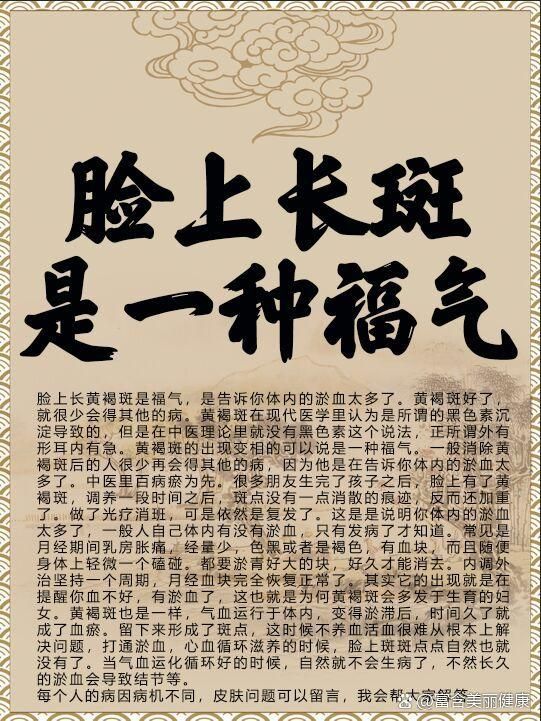 脸上长斑
是一种福气
脸上长黄褐斑是福气，是告诉你体内的淤血太多了。黄褐斑好了，
就很少会得其他的病。黄褐斑在现代医学里认为是所谓的黑色素沉
淀导致的，但是在中医理论里就没有黑色素这个说法，正所谓外有
形耳内有急。黄褐斑的出现变相的可以说是一种福气。一般消除黄
褐斑后的人很少再会得其他的病，因为他是在告诉你体内的淤血太
多了。中医里百病瘀为先。很多朋友生完了孩子之后，脸上有了黄
褐斑，调养一段时间之后，斑点没有一点消散的痕迹，反而还加重
了。做了光疗消班，可是依然是复发了。这是是说明你体内的淤血
太多了，一般人自己体内有没有淤血，只有发病了才知道。常见是
月经期间乳房胀痛，经量少，色黑或者是褐色，有血块，而且随便
身体上轻微一个磕碰。都要淤青好大的块，好久才能消去。内调外
治坚持一个周期，月经血块完全恢复正常了。其实它的出现就是在
提醒你血不好，有淤血了，这也就是为何黄褐斑会多发于生育的妇
女。黄褐斑也是一样，气血运行于体内，变得淤滞后，时间久了就
成了血瘀。留下来形成了斑点，这时候不养血活血很难从根本上解
决问题，打通淤血，心血循环滋养的时候，脸上斑斑点点自然也就
没有了。当气血运化循环好的时候，自然就不会生病了，不然长久
的淤血会导致结节等。
每个人的病因病机不同，皮肤问题可以留言，我会帮大家解答
富含美丽健康